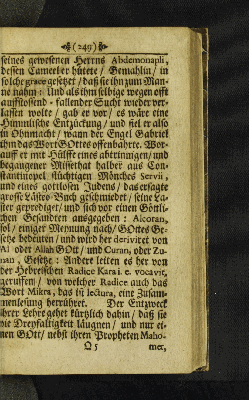 (249)
seines gewesenen Herrns Abdemonapli,
dessen Cameel er hütete/ Gemahlin/ in
solche grace gesetzt/ daß sie ihn zum Man-
ne nahm: Und als ihm selbige wegen offt
auffstossend-fallender Sucht wieder ver-
lassen wolte/ gab er vor/ es wäre eine
Himmlische Entzückung/ und fiel er also
in Ohnmacht/ wann der Engel Gabriel
ihm das Wort Gottes offenbahrte. Wor-
auff er mit Hülffe eines abtrinnigen/ und
begangener Missethat halber aus Con-
stantinopel flüchtigen Mönches Servii,
und eines gottlosen Judens/ das ersagte
grosse Laster-Buch geschmiedet/ seine La-
ster geprediget/ und sich vor einen Göttli-
chen Gesandten ausgegeben: Alcoran,
soll/ einiger Meynung nach/ GOttes Ge-
setze bedeuten/ und wird her derivirt von
Al oder Allah GOtt/ und Curan, oder Zu-
nan, Gesetze: Andere leiten es her von
der Hebreischen Radice Kara i. e. vocavit,
geruffen/ von welcher Radice auch das
Wort Mikra, das ist lectura, eine Zusam-
menlesung herrühret. Der Entzweck
ihrer Lehre gehet kürtzlich dahin/ daß sie
die Dreyfaltigkeit läugnen/ und nur ei-
nen GOtt/ nebst ihren Propheten Maho-
Q 5 met,